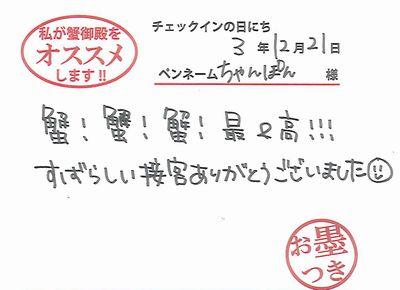 私が蟹御殿を
オススメ
します!!
チェックインの日にち
3年12月21日
ペンネームちゃんぽん様
蟹！蟹！蟹！最&高!!!
すばらしい接客ありがとうございました☺
お墨
つき